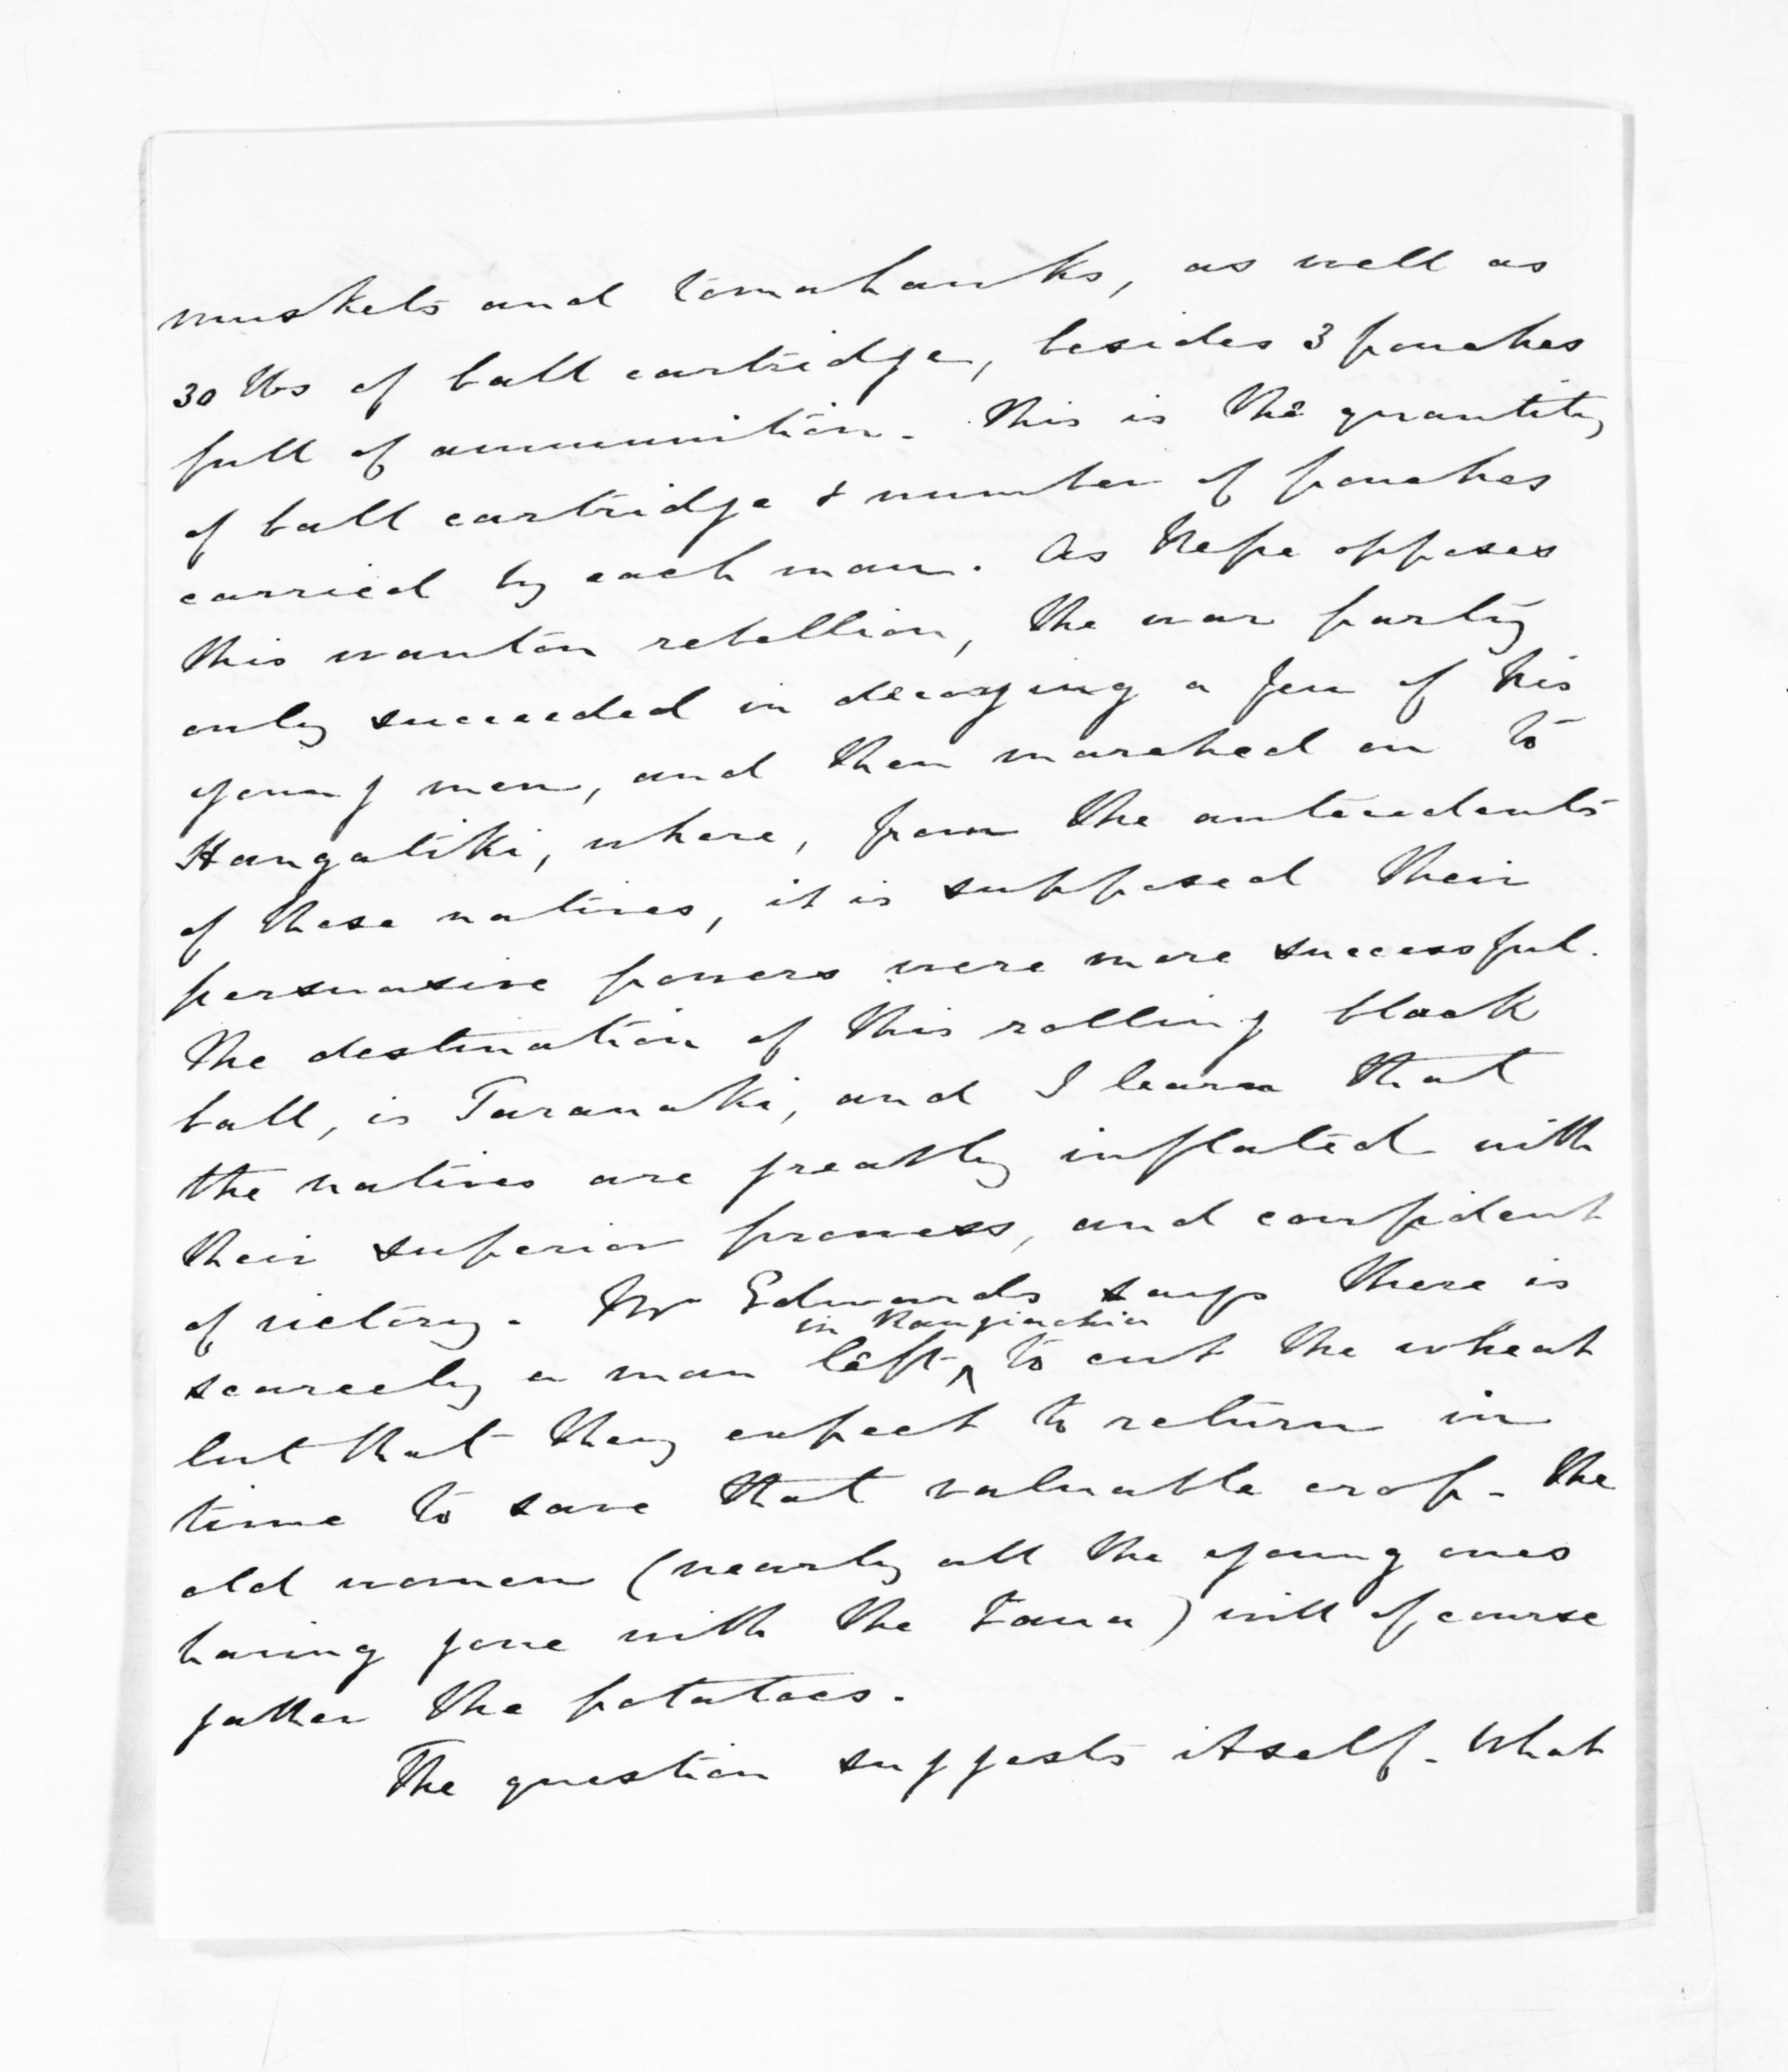 muskets and tomahawks, as well as
30 lbs of ball cartridge, besides 3 pouches
full of ammunition. This is the quantity
of ball cartridge & number of pouches
carried by each man. As Hepe opposes
this wanton rebellion, the war party
only succeeded in decoying a few of his
young men, and then marched on to
Hangatiki, where, from the antecedents
of these natives, it is supposed their
persuasive powers were more successful.
The destination of this rolling black
ball, is Taranaki, and I learn that
the natives are greatly inflated with
their superior prowess, and confident
of victory. Mr Edwards says there is
in Rangiaohia
scarcely a man left ^ to cut the wheat
but that they expect to return in
time to save that valuable crop - The
old women (nearly all the young ones
having gone with the taua) will of course
gather the potatoes.
The question suggests itself - What